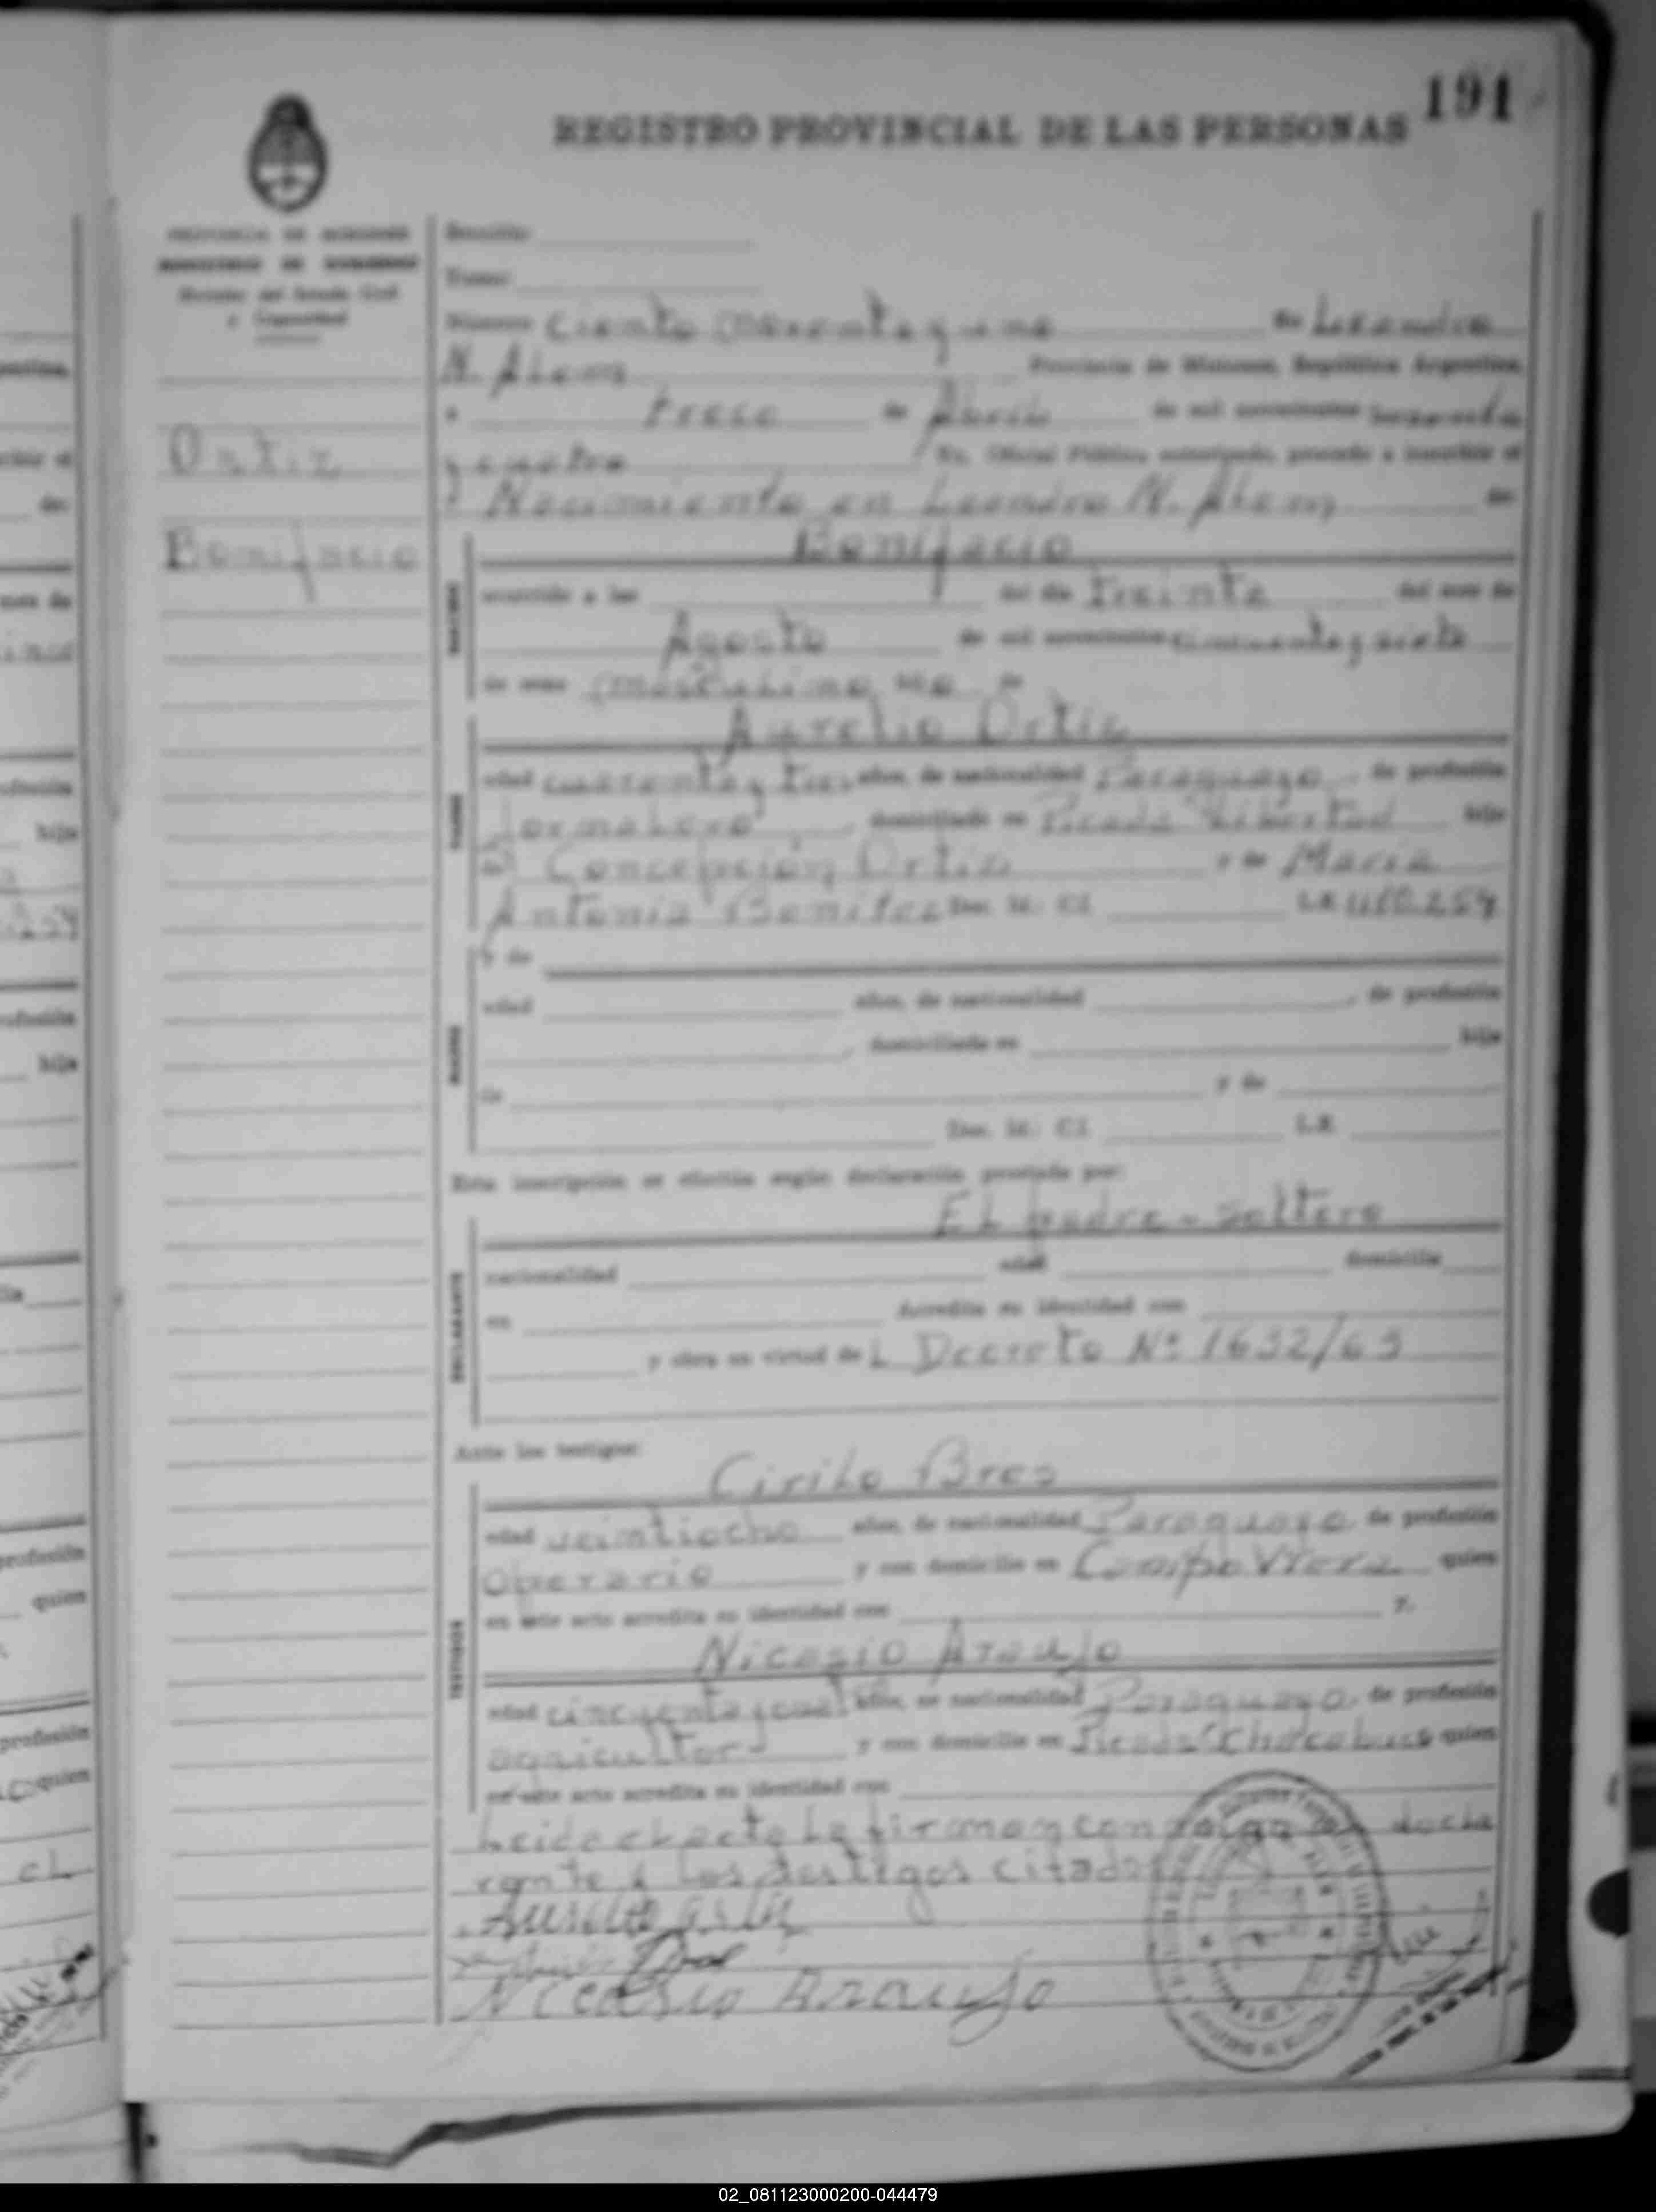 191
REGISTRO PROVINCIAL DE LAS PERSONAS
PROVINCIA DE MISIONES
MINISTERIO DE GOBIERNO
Division del Estado Civil
y Capacidad
Ortiz
Bonifacio
Sección
Tomo:
Número Ciento noventa y uno En Leandro
N. Alem Provincia de Misiones, República Argentina,
a trece de Abril de mil novecientos sesenta
y cuatro Yo, Oficial Público autorizado, procedo a inscribir el
Nacimiento en Leandro N. Alem de:
Bonifacio
ocurrido a las del día treinta del mes de
Agosto de mil novecientos cincuenta y siete
de sexo masculino de
PADRE
Aurelio Ortiz
edad cuarenta y tres años, de nacionalidad Paraguaya, de profesión
Jornalero domiciliado en Picada "Libertad hijo
de Concepción Ortiz y de María
Antonia Benitez Doc. Id. CI.
MADRE
Y de
edad años, de nacionalidad , de profesión
, domiciliada en hija
de y de
Doc. Id.: CI. L.E.
Esta inscripción se efectúa según declaración prestada por:
El padre - soltero
DECLARANTE
nacionalidad edad domicilia
en Acredita su identidad con
y obra en virtud del Decreto Nº 1632/63
Ante los testigos:
Cirilo Bres
TESTIGOS
edad veintiocho años, de nacionalidad Paraguaya, de profesión
Operario y con domicilio en Campo Viera quien
en este acto acredita su identidad con y,
Nicasio Araujo
edad cincuenta y años, de nacionalidad Paraguaya, de profesión
agricultor y con domicilio en Picada Chacabuco quien
en este acto acredita su identidad con
Leida el acta la firman conmigo el decla
rante y los testigos citados
Aurelio Ortiz
Nicasio Araujo
02_081123000200-044479